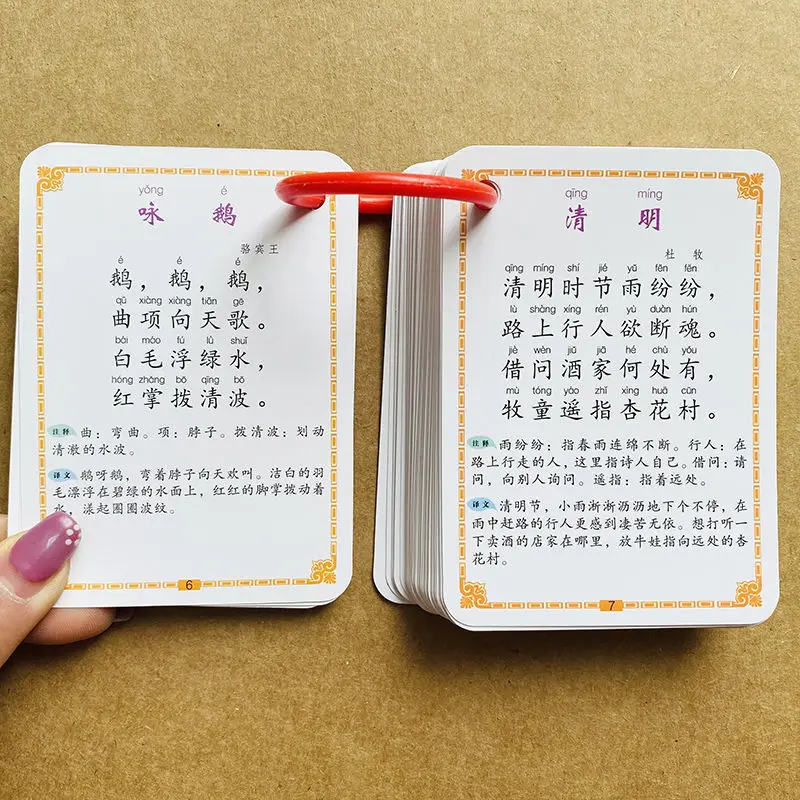 yǒng é
咏 鹅
骆宾王
é é é
鹅，鹅，鹅，
qū xiàng xiàng tiān gē
曲项向天歌。
bái máo fú lǜ shuǐ
白毛浮绿水，
hóng zhǎng bō qīng bō
红掌拨清波。
注释 曲：弯曲。项：脖子。拨清波：划动
清澈的水波。
译文 鹅呀鹅，弯着脖子向天欢叫。洁白的羽
毛漂浮在碧绿的水面上，红红的脚掌拨动着
水，漾起圈圈波纹。
6
qīng míng
清 明
杜 牧
qīng míng shí jié yǔ fēn fēn
清明时节雨纷纷，
lù shàng xíng rén yù duàn hún
路上行人欲断魂。
jiè wèn jiǔ jiā hé chù yǒu
借问酒家何处有，
mù tóng yáo zhǐ xìng huā cūn
牧童遥指杏花村。
注释 雨纷纷：指春雨连绵不断。行人：在
路上行走的人，这里指诗人自己。借问：请
问，向别人询问。遥指：指着远处。
译文 清明节，小雨淅淅沥沥地下个不停，在
雨中赶路的行人更感到凄苦无依。想打听一
下卖酒的店家在哪里，放牛娃指向远处的杏
花村。
7